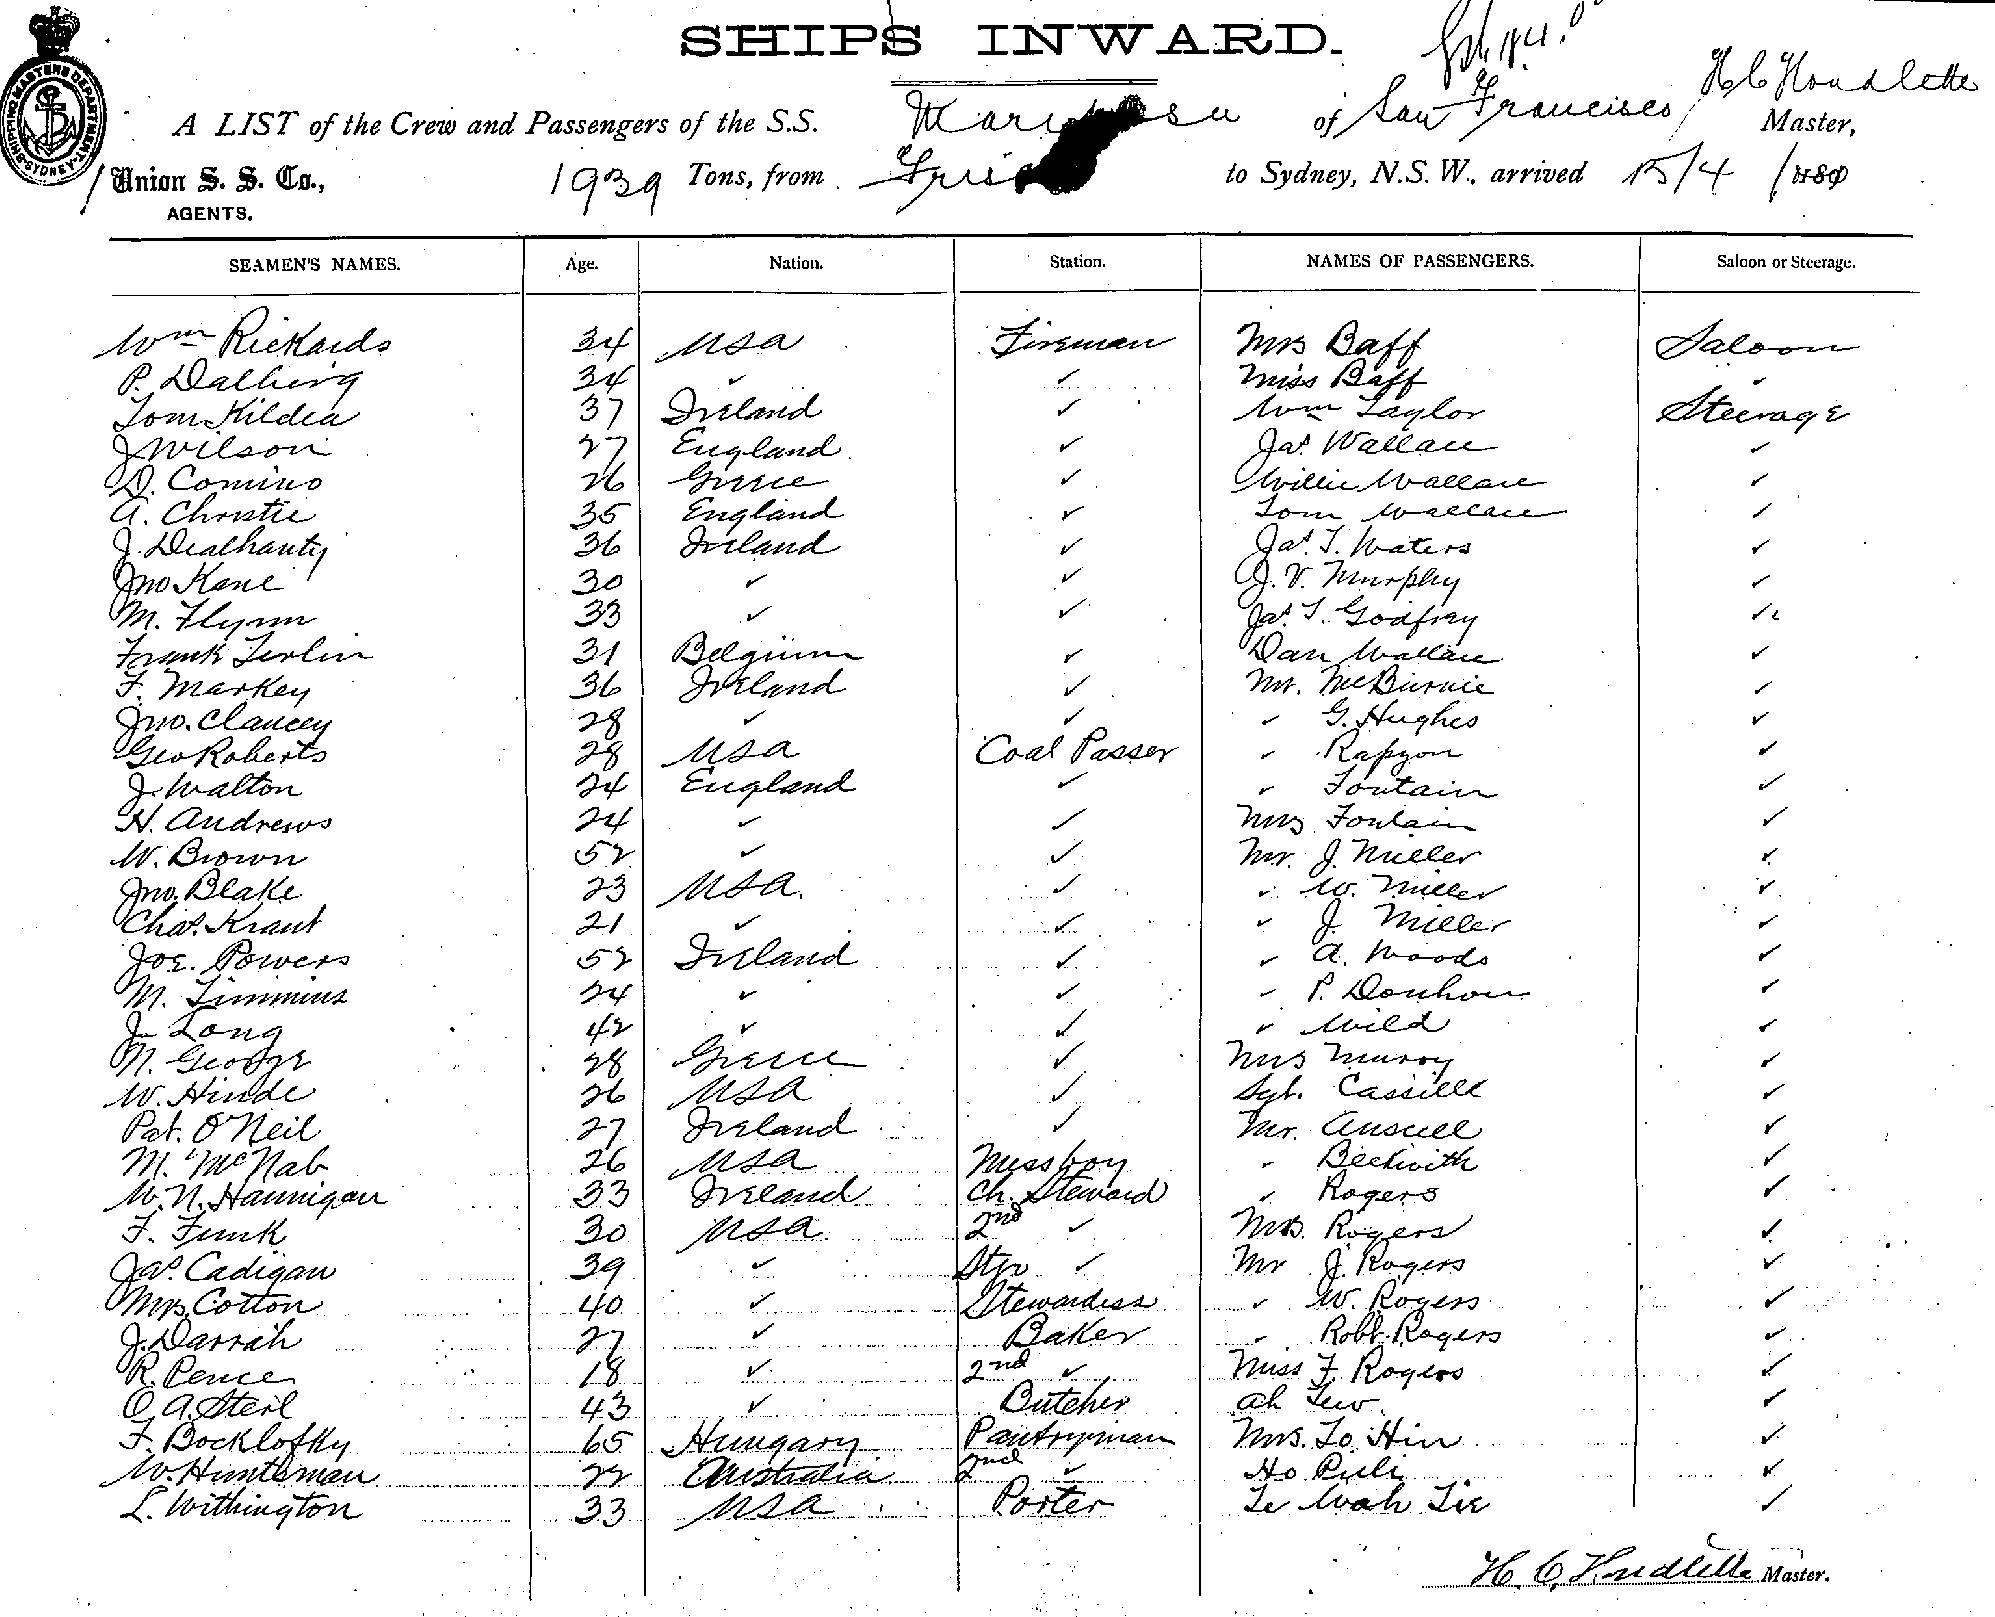 SHIPS INWARD.
H C Houdlette
A LIST of the Crew and Passengers of the S.S. of San Francisco Master,
Union S. S. Co., 1939 Tons, from to Sydney, N.S.W., arrived 15/4
AGENTS.
SHIPPING MASTERS DEPARTMENT SYDNEY
SEAMEN'S NAMES. Age. Nation. Station. NAMES OF PASSENGERS. Saloon or Steerage.
Wm Rickards 34 USA Fireman Mrs Baff Saloon
P. Dalhing 34 ✓ ✓ Miss Baff ✓
Tom Kildea 37 Ireland ✓ Wm Taylor Steerage
J Wilson 27 England ✓ Jas. Wallace ✓
D. Comino 26 Greece ✓ Willie Wallace ✓
A. Christie 35 England ✓ Tom Wallace ✓
J. Dealhanty 36 Ireland ✓ Jas. T. Waters ✓
Jno Kane 30 ✓ ✓ J. V. Murphy ✓
M. Flynn 33 ✓ ✓ Jas. T. Godfrey ✓
Frank Terlin 31 Belgium ✓ Dan Wallace ✓
F. Markey 36 Ireland ✓ Mr. McBurnie ✓
Jno. Clancey 28 ✓ ✓ ✓ G. Hughes ✓
Geo Roberts 28 USA Coal Passer ✓ Rapzon ✓
J. Walton 24 England ✓ ✓ Fontain ✓
H. Andrews 24 ✓ ✓ Mrs Fontain ✓
W. Brown 52 ✓ ✓ Mr. J. Miller ✓
Jno. Blake 23 USA. ✓ ✓ W. Miller ✓
Chas. Kraut 21 ✓ ✓ ✓ J. Miller ✓
Joe. Powers 52 Ireland ✓ ✓ A. Woods ✓
M. Timmins 24 ✓ ✓ ✓ P. Donhou ✓
J. Long 42 ✓ ✓ ✓ Wild ✓
N. George 28 Greece ✓ Mrs Murry ✓
W. Hinde 26 USA ✓ Sgt. Cassille ✓
Pat. O'Neil 27 Ireland ✓ Mr. Ansell ✓
M. McNab 26 USA Messboy ✓ Beekwith ✓
W. N. Hannigan 33 Ireland Ch. Steward ✓ Rogers ✓
F. Funk 30 USA 2nd ✓ Mrs. Rogers ✓
Jas. Cadigan 39 ✓ Ster ✓ Mr J. Rogers ✓
Mrs Cotton 40 ✓ Stewardess ✓ W. Rogers ✓
J. Darrah 27 ✓ Baker ✓ Robt. Rogers ✓
R. Pence 18 ✓ 2nd ✓ Miss F. Rogers ✓
O. A. Sterl 43 ✓ Butcher Ah ✓
F. Bocklofky 65 Hungary Pantryman Mrs. To Hin ✓
W. Huntsman 22 Australia 2nd ✓ Ho Puli ✓
L. Withington 33 USA Porter Le Wah Tie ✓
H. C. Houdlette Master.